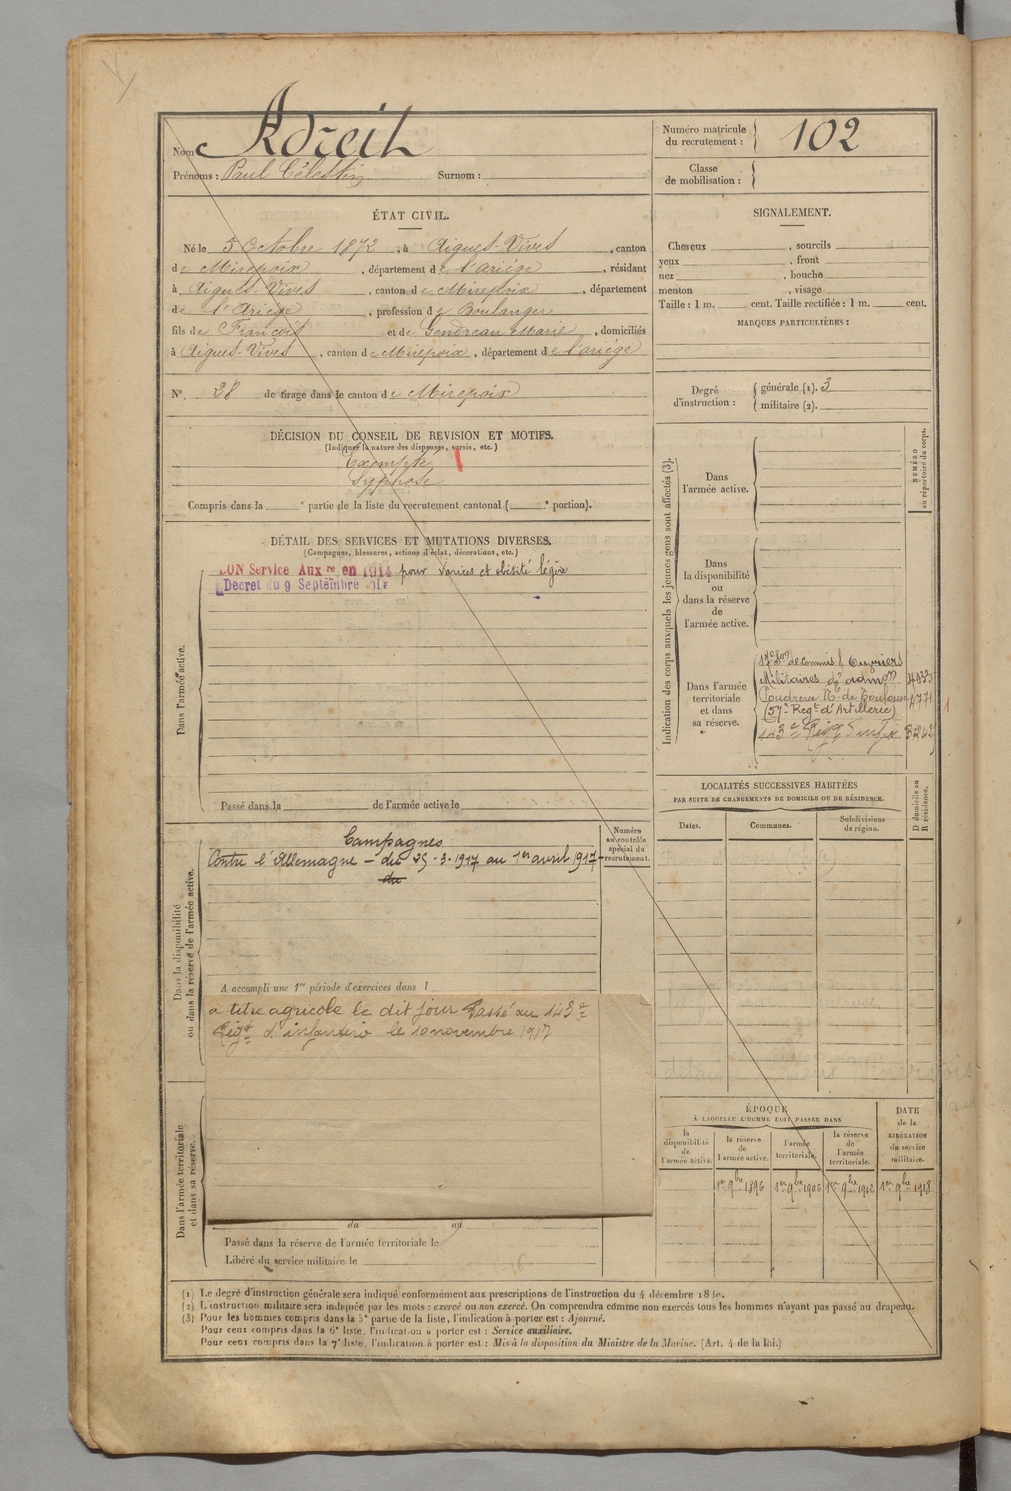 Nom Adreit
Prénoms : Paul Célestin Surnom :
Numéro matricule du recrutement : 102
Classe de mobilisation :
ÉTAT CIVIL.
Né le 5 Octobre 1872, à Aigues-Vives, canton
de Mirepoix, département de l'ariège, résidant
à Aigues-Vives, canton de Mirepoix, département
de l'Ariège, profession de Boulanger
fils de François et de Gendreau Marie, domiciliés
à Aigues-Vives, canton de Mirepoix, département de l'ariège
N°. 28 de tirage dans le canton de Mirepoix
SIGNALEMENT.
Cheveux , sourcils
yeux , front
nez , bouche
menton , visage
Taille : 1 m. cent. Taille rectifiée : 1 m. cent.
MARQUES PARTICULIÈRES :
Degré d'instruction : générale (1). 3
militaire (2).
DÉCISION DU CONSEIL DE REVISION ET MOTIFS.
(Indiquer la nature des dispenses, sursis, etc.)
Exempté
Cyphose
Compris dans la e partie de la liste du recrutement cantonal ( e portion).
DÉTAIL DES SERVICES ET MUTATIONS DIVERSES.
(Campagnes, blessures, actions d'éclat, décorations, etc.)
Dans l'armée active.
BON Service Auxre en 1914 pour varices et obésité légère
Decret du 9 Septembre
Passé dans la de l'armée active le
Indication des corps auxquels les jeunes gens sont affectés (3).
NUMÉRO au répertoire du corps.
Dans l'armée active.
Dans la disponibilité ou dans la réserve de l'armée active.
Dans l'armée territoriale et dans sa réserve.
17e Son de commis & Ouvriers
Militaires d'admon
Poudrerie Nle de Toulouse 4771
(57e Regt d'Artillerie)
143e Regt d'infie
LOCALITÉS SUCCESSIVES HABITÉES
PAR SUITE DE CHANGEMENTS DE DOMICILE OU DE RÉSIDENCE.
D domicile ou R résidence.
Dates. Communes. Subdivisions de région.
Dans la disponibilité ou dans la réserve de l'armée active.
Numéro au contrôle spécial du recrutement.
Campagnes
Contre l'Allemagne – du 25-3-1917 au 1er avril 1917
du
A accompli une 1re période d'exercices dans l
à titre agricole le dit jour Passé au 143e
Regt d'infanterie le 10 novembre 1917
Dans l'armée territoriale et dans sa réserve.
du au
Passé dans la réserve de l'armée territoriale le
Libéré du service militaire le
ÉPOQUE
À LAQUELLE L'HOMME DOIT PASSER DANS
la disponibilité de l'armée active.
la réserve de l'armée active.
l'armée territoriale.
la réserve de l'armée territoriale.
DATE de la LIBÉRATION du service militaire.
1er 9bre 1896 1er 9bre 1906 1er 9bre 1912 1er 9bre 1918
(1) Le degré d'instruction générale sera indiqué conformément aux prescriptions de l'instruction du 4 décembre 1889.
(2) L'instruction militaire sera indiquée par les mots : exercé ou non exercé. On comprendra comme non exercés tous les hommes n'ayant pas passé au drapeau.
(3) Pour les hommes compris dans la 5e partie de la liste, l'indication à porter est : Ajourné.
Pour ceux compris dans la 6e liste, l'indication à porter est : Service auxiliaire.
Pour ceux compris dans la 7e liste, l'indication à porter est : Mis à la disposition du Ministre de la Marine. (Art. 4 de la loi.)